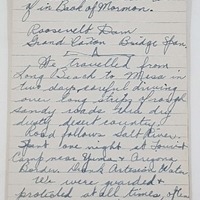 of in Book of Mormon.
Roosevelt Dam
Grand Cañon Bridge Span.
We travelled from
Long Beach to Mesa in
two days, careful driving
over long strips of rough
sandy roads thru dry
dusty desert country.
Road follows Salt River.
Spent one night at Tourist
Camp near Yuma, Arizona
Border. Drank Artesian Water
We were guarded &
protected at all times, often